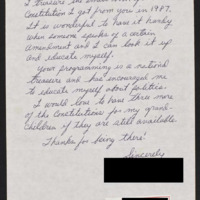 I treasure the small copy of the
Constitution I got from you in 1987.
It is wonderful to have it handy
when someone speaks of a certain
Amendment and I can look it up
and educate myself.
Your programming is a national
treasure and has encouraged me
to educate myself about politics.
I would love to have three more
of the Constitutions for my grand-
children if they are still available.
Thanks for being there!
Sincerely